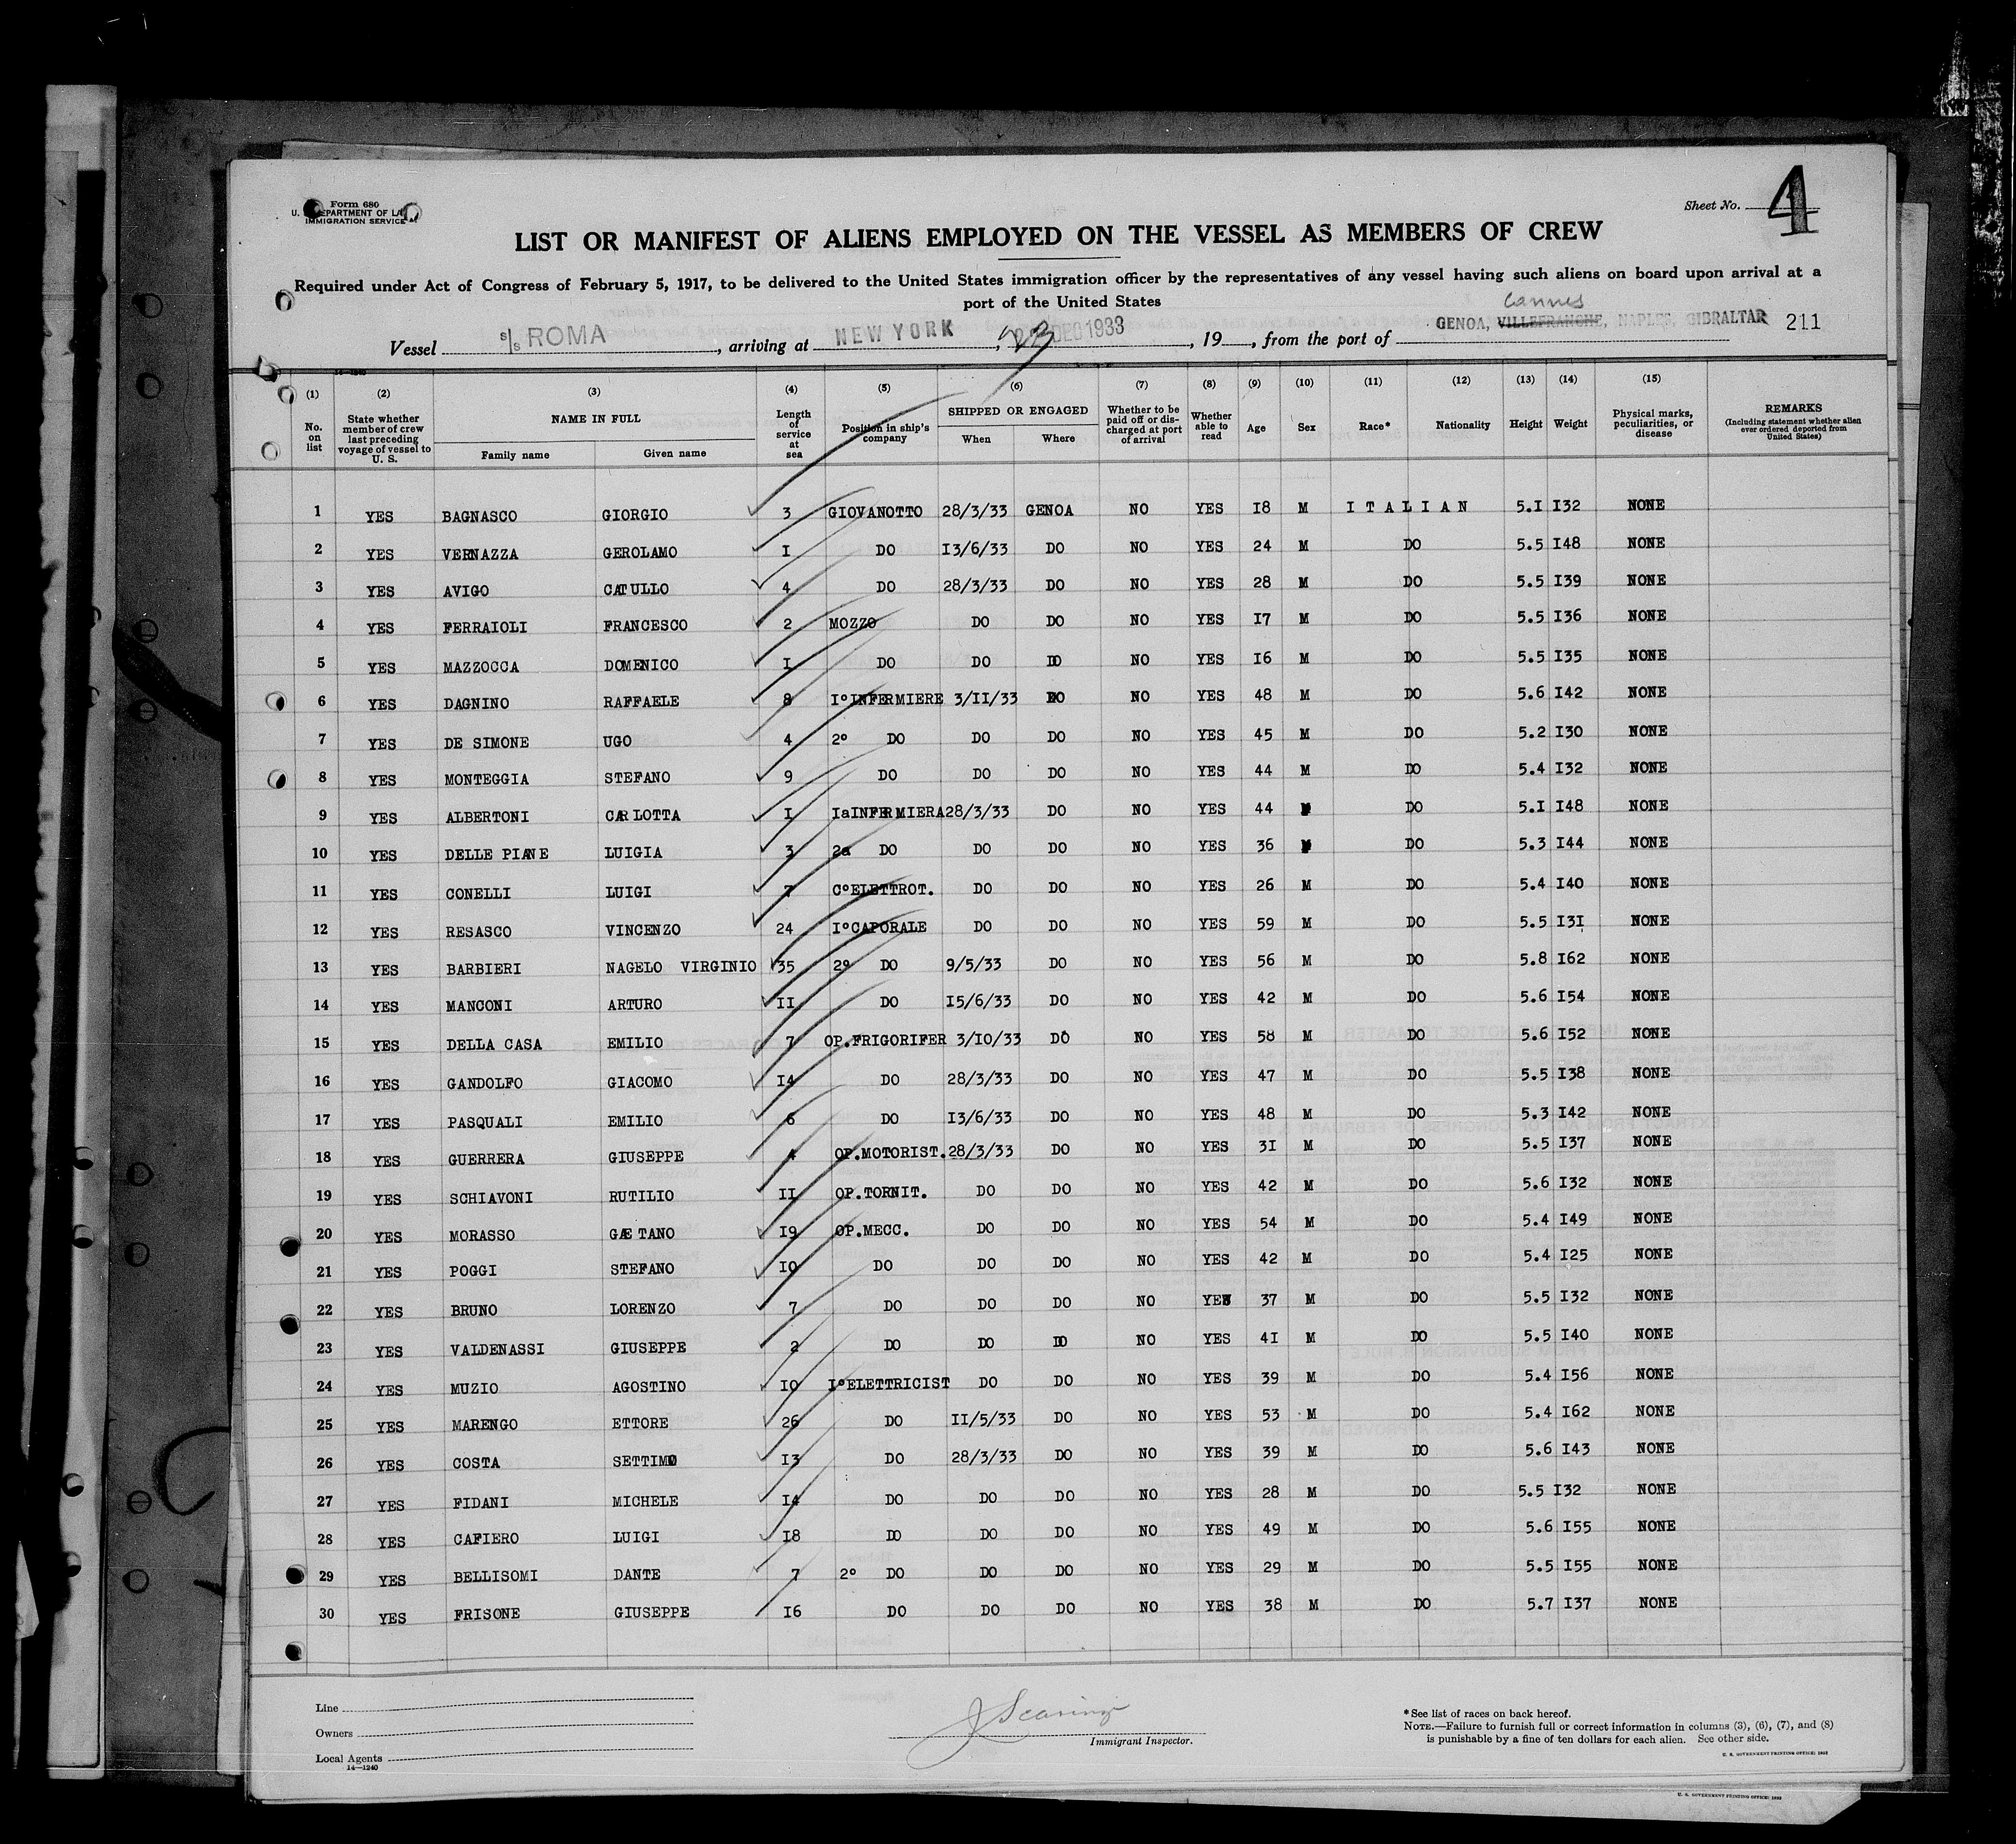 Form 680
U. S. DEPARTMENT OF LA
IMMIGRATION SERVICE
Sheet No. 4
LIST OR MANIFEST OF ALIENS EMPLOYED ON THE VESSEL AS MEMBERS OF CREW
Required under Act of Congress of February 5, 1917, to be delivered to the United States immigration officer by the representatives of any vessel having such aliens on board upon arrival at a
port of the United States
Cannes
Vessel s/s ROMA, arriving at NEW YORK, 23 DEC 1933, 19, from the port of GENOA, VILLEFRANCHE, NAPLES, GIBRALTAR 211
14-1240
(1) (2) (3) (4) (5) (6) (7) (8) (9) (10) (11) (12) (13) (14) (15)
No. on list State whether member of crew last preceding voyage of vessel to U. S. NAME IN FULL Family name Given name Length of service at sea Position in ship's company SHIPPED OR ENGAGED When Where Whether to be paid off or discharged at port of arrival Whether able to read Age Sex Race* Nationality Height Weight Physical marks, peculiarities, or disease REMARKS (Including statement whether alien ever ordered deported from United States)
1 YES BAGNASCO GIORGIO 3 GIOVANOTTO 28/3/33 GENOA NO YES I8 M ITALIAN 5.I I32 NONE
2 YES VERNAZZA GEROLAMO I DO I3/6/33 DO NO YES 24 M DO 5.5 I48 NONE
3 YES AVIGO CATULLO 4 DO 28/3/33 DO NO YES 28 M DO 5.5 I39 NONE
4 YES FERRAIOLI FRANCESCO 2 MOZZO DO DO NO YES I7 M DO 5.5 I36 NONE
5 YES MAZZOCCA DOMENICO I DO DO DO NO YES I6 M DO 5.5 I35 NONE
6 YES DAGNINO RAFFAELE 8 I°INFERMIERE 3/II/33 DO NO YES 48 M DO 5.6 I42 NONE
7 YES DE SIMONE UGO 4 2° DO DO DO NO YES 45 M DO 5.2 I30 NONE
8 YES MONTEGGIA STEFANO 9 DO DO DO NO YES 44 M DO 5.4 I32 NONE
9 YES ALBERTONI CARLOTTA I IaINFERMIERA 28/3/33 DO NO YES 44 DO 5.I I48 NONE
10 YES DELLE PIANE LUIGIA 3 2a DO DO DO NO YES 36 DO 5.3 I44 NONE
11 YES CONELLI LUIGI 7 C°ELETTROT. DO DO NO YES 26 M DO 5.4 I40 NONE
12 YES RESASCO VINCENZO 24 I°CAPORALE DO DO NO YES 59 M DO 5.5 I3I NONE
13 YES BARBIERI NAGELO VIRGINIO 35 2° DO 9/5/33 DO NO YES 56 M DO 5.8 I62 NONE
14 YES MANCONI ARTURO II DO I5/6/33 DO NO YES 42 M DO 5.6 I54 NONE
15 YES DELLA CASA EMILIO 7 OP.FRIGORIFER 3/IO/33 DO NO YES 58 M DO 5.6 I52 NONE
16 YES GANDOLFO GIACOMO I4 DO 28/3/33 DO NO YES 47 M DO 5.5 I38 NONE
17 YES PASQUALI EMILIO 6 DO I3/6/33 DO NO YES 48 M DO 5.3 I42 NONE
18 YES GUERRERA GIUSEPPE 4 OP.MOTORIST. 28/3/33 DO NO YES 3I M DO 5.5 I37 NONE
19 YES SCHIAVONI RUTILIO II OP.TORNIT. DO DO NO YES 42 M DO 5.6 I32 NONE
20 YES MORASSO GAETANO I9 OP.MECC. DO DO NO YES 54 M DO 5.4 I49 NONE
21 YES POGGI STEFANO IO DO DO DO NO YES 42 M DO 5.4 I25 NONE
22 YES BRUNO LORENZO 7 DO DO DO NO YES 37 M DO 5.5 I32 NONE
23 YES VALDENASSI GIUSEPPE 2 DO DO DO NO YES 4I M DO 5.5 I40 NONE
24 YES MUZIO AGOSTINO IO I°ELETTRICIST DO DO NO YES 39 M DO 5.4 I56 NONE
25 YES MARENGO ETTORE 26 DO II/5/33 DO NO YES 53 M DO 5.4 I62 NONE
26 YES COSTA SETTIMO I3 DO 28/3/33 DO NO YES 39 M DO 5.6 I43 NONE
27 YES FIDANI MICHELE I4 DO DO DO NO YES 28 M DO 5.5 I32 NONE
28 YES CAFIERO LUIGI I8 DO DO DO NO YES 49 M DO 5.6 I55 NONE
29 YES BELLISOMI DANTE 7 2° DO DO DO NO YES 29 M DO 5.5 I55 NONE
30 YES FRISONE GIUSEPPE I6 DO DO DO NO YES 38 M DO 5.7 I37 NONE
Line
Owners
Local Agents
14—1240
Immigrant Inspector.
*See list of races on back hereof.
NOTE.—Failure to furnish full or correct information in columns (3), (6), (7), and (8)
is punishable by a fine of ten dollars for each alien. See other side.
U. S. GOVERNMENT PRINTING OFFICE: 1932
U. S. GOVERNMENT PRINTING OFFICE: 1932